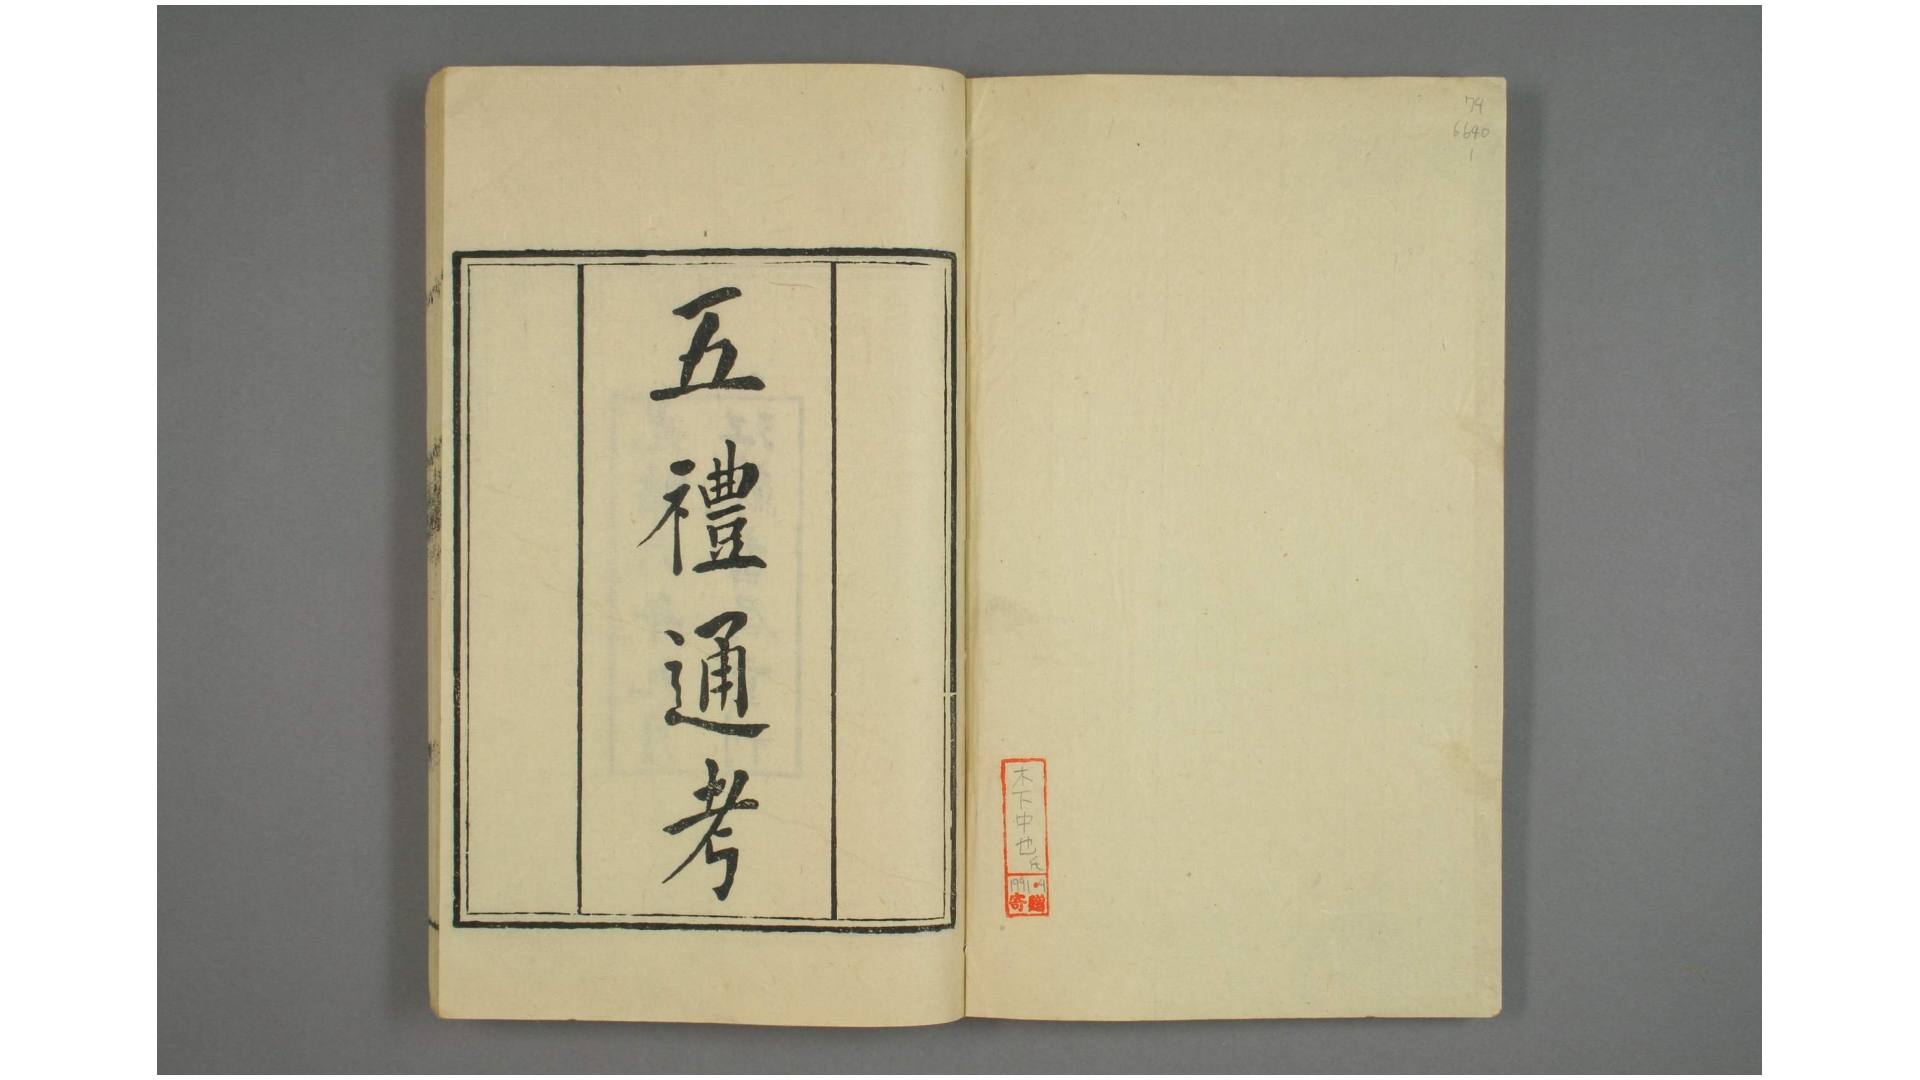 74
6640
1
木下中也氏
1991・9
寄贈
五禮通考